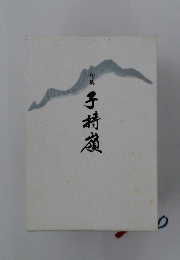 句集
子持嶺